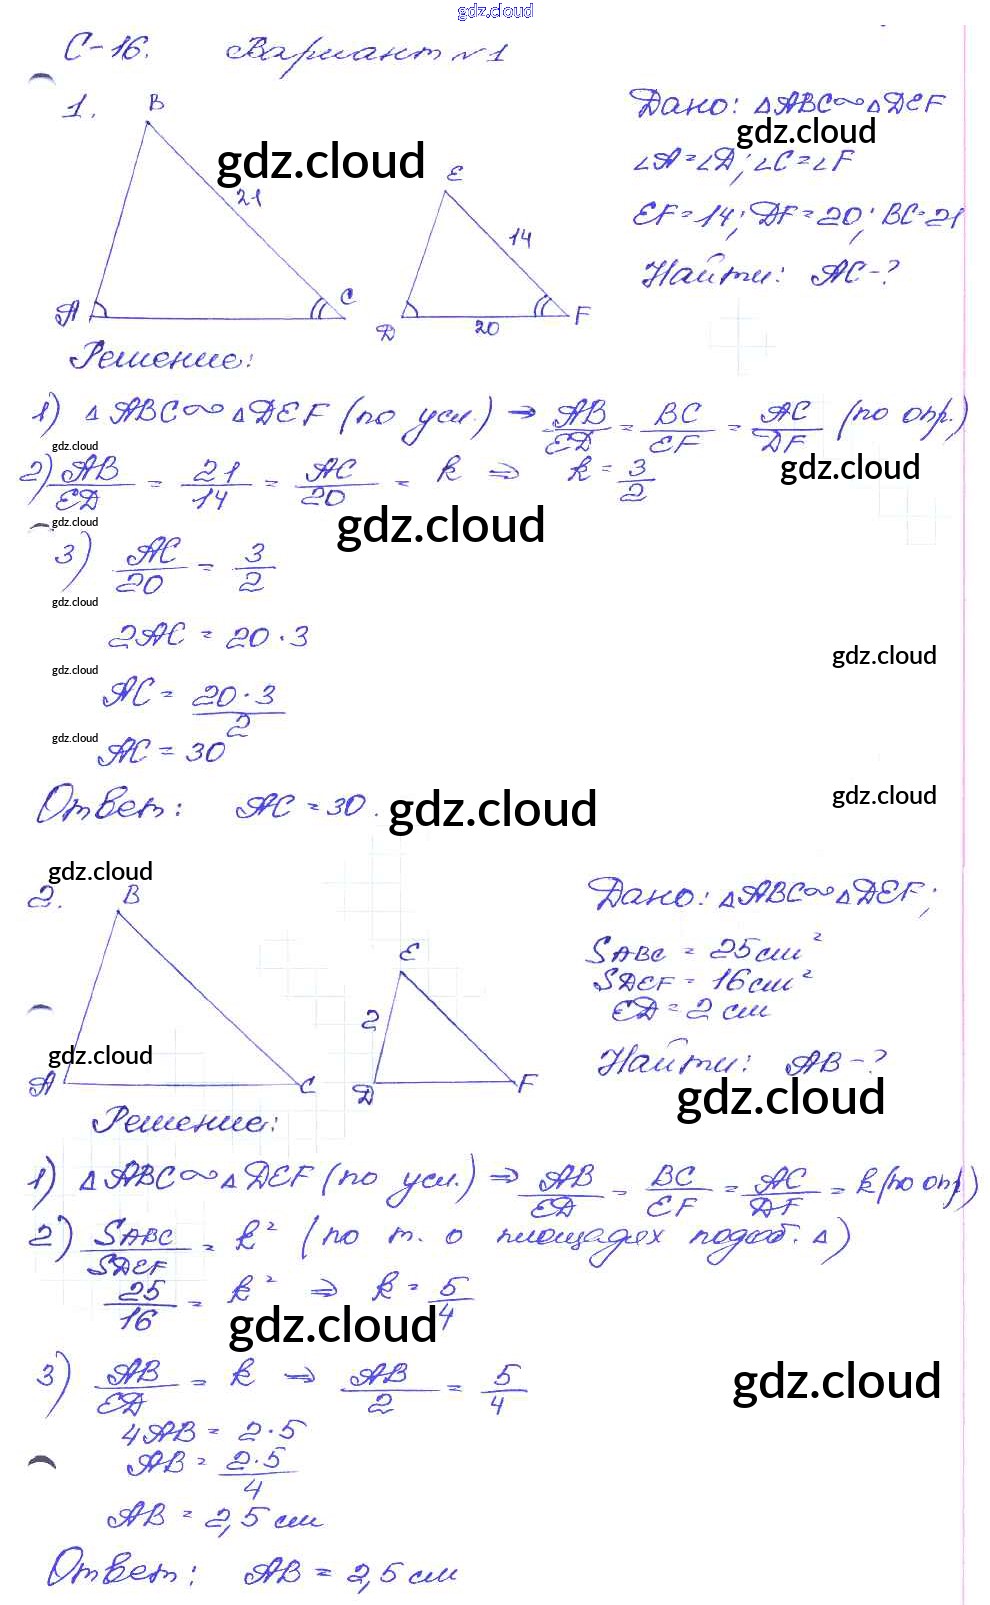 gdz.cloud
С-16. Вариант №1
1.
B
21
A
C
E
14
D
20
F
gdz.cloud
Дано: △ABC∾△DEF
gdz.cloud
∠A=∠D; ∠C=∠F
EF=14; DF=20; BC=21
Найти: AC-?
Решение:
1) △ABC∾△DEF (по усл.) ⇒ AB/ED = BC/EF = AC/DF (по опр.)
gdz.cloud
gdz.cloud
2) AB/ED = 21/14 = AC/20 = k ⇒ k = 3/2
gdz.cloud
gdz.cloud
3) AC/20 = 3/2
gdz.cloud
2AC = 20·3
gdz.cloud
gdz.cloud
AC = 20·3/2
gdz.cloud
AC = 30
Ответ: AC = 30.
gdz.cloud
gdz.cloud
gdz.cloud
2.
B
A
C
E
2
D
F
gdz.cloud
Дано: △ABC∾△DEF;
SABC = 25см²
SDEF = 16см²
ED = 2 см
Найти: AB-?
gdz.cloud
Решение:
1) △ABC∾△DEF (по усл.) ⇒ AB/ED = BC/EF = AC/DF = k (по опр)
2) SABC/SDEF = k² (по т. о площадях подоб. △)
25/16 = k² ⇒ k = 5/4
gdz.cloud
3) AB/ED = k ⇒ AB/2 = 5/4
gdz.cloud
4AB = 2·5
AB = 2·5/4
AB = 2,5 см
Ответ: AB = 2,5 см